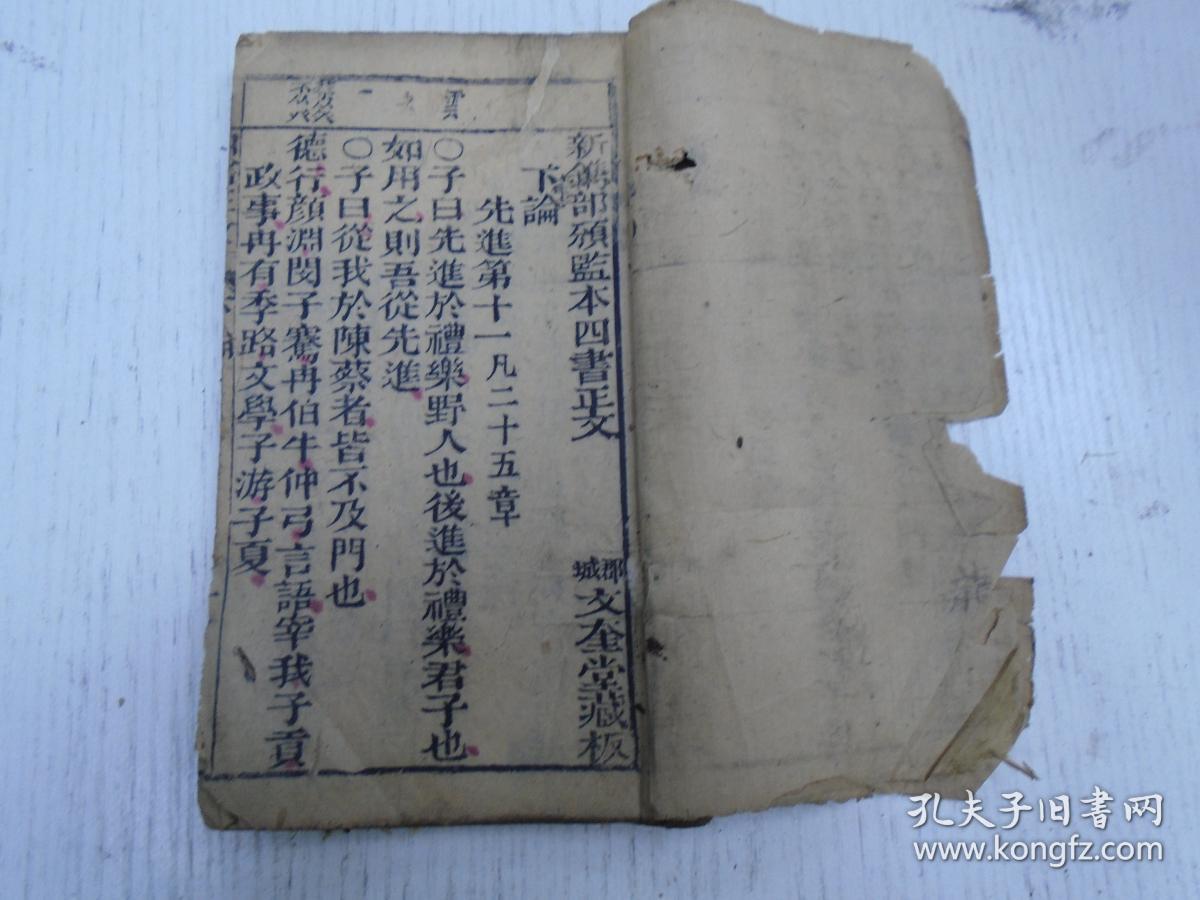 新鐫部頒監本四書正文 郡城 文奎堂藏板
下論
先進第十一凡二十五章
○子曰先進於禮樂野人也後進於禮樂君子也
如用之則吾從先進
○子曰從我於陳蔡者皆不及門也
德行顏淵閔子騫冉伯牛仲弓言語宰我子貢
政事冉有季路文學子游子夏
孔夫子旧书网
www.kongfz.com